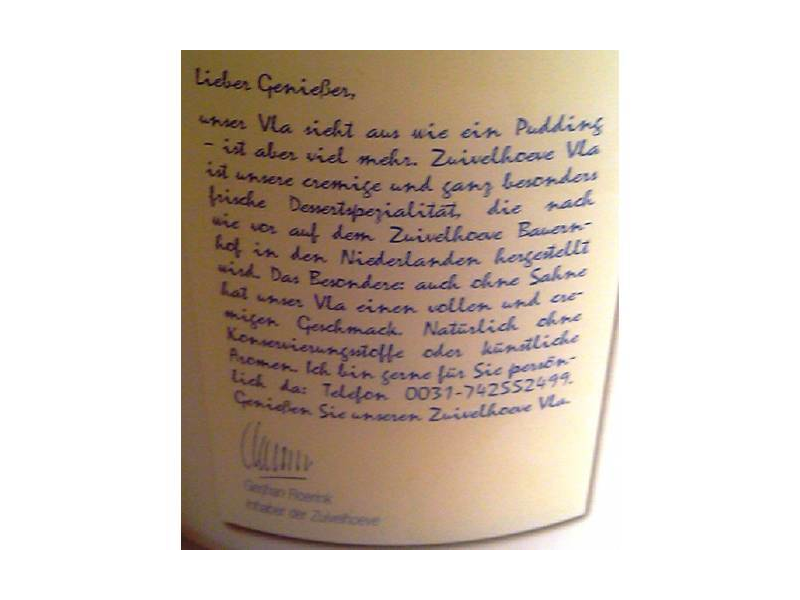 Lieber Genießer,
unser Vla sieht aus wie ein Pudding
- ist aber viel mehr. Zuivelhoeve Vla
ist unsere cremige und ganz besonders
frische Dessertspezialität, die nach
wie vor auf dem Zuivelhoeve Bauern-
hof in den Niederlanden hergestellt
wird. Das Besondere: auch ohne Sahne
hat unser Vla einen vollen und cre-
migen Geschmack. Natürlich ohne
Konservierungsstoffe oder künstliche
Aromen. Ich bin gerne für Sie persön-
lich da: Telefon 0031-742552499.
Genießen Sie unseren Zuivelhoeve Vla.
Roerink
Inhaber der Zuivelhoeve